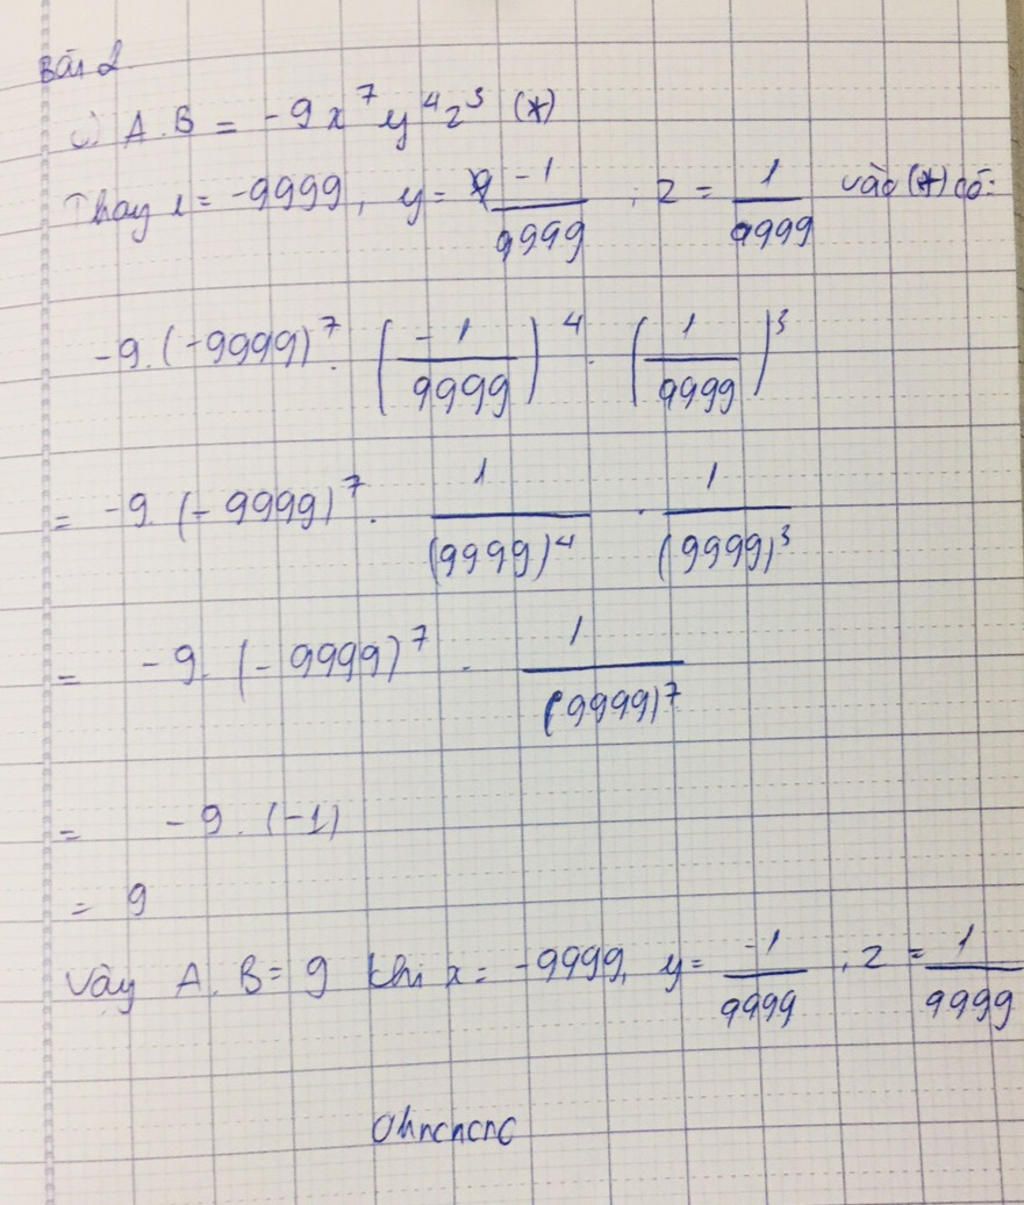 Bài 2
c) A.B = -9x⁷y⁴z³ (*)
Thay x = -9999, y = -1/9999 ; z = 1/9999 vào (*) có:
-9.(-9999)⁷.(-1/9999)⁴.(1/9999)³
= -9.(-9999)⁷. 1/(9999)⁴ . 1/(9999)³
= -9.(-9999)⁷ . 1/(9999)⁷
= -9.(-1)
= 9
Vậy A.B = 9 khi x = -9999, y = -1/9999 , z = 1/9999